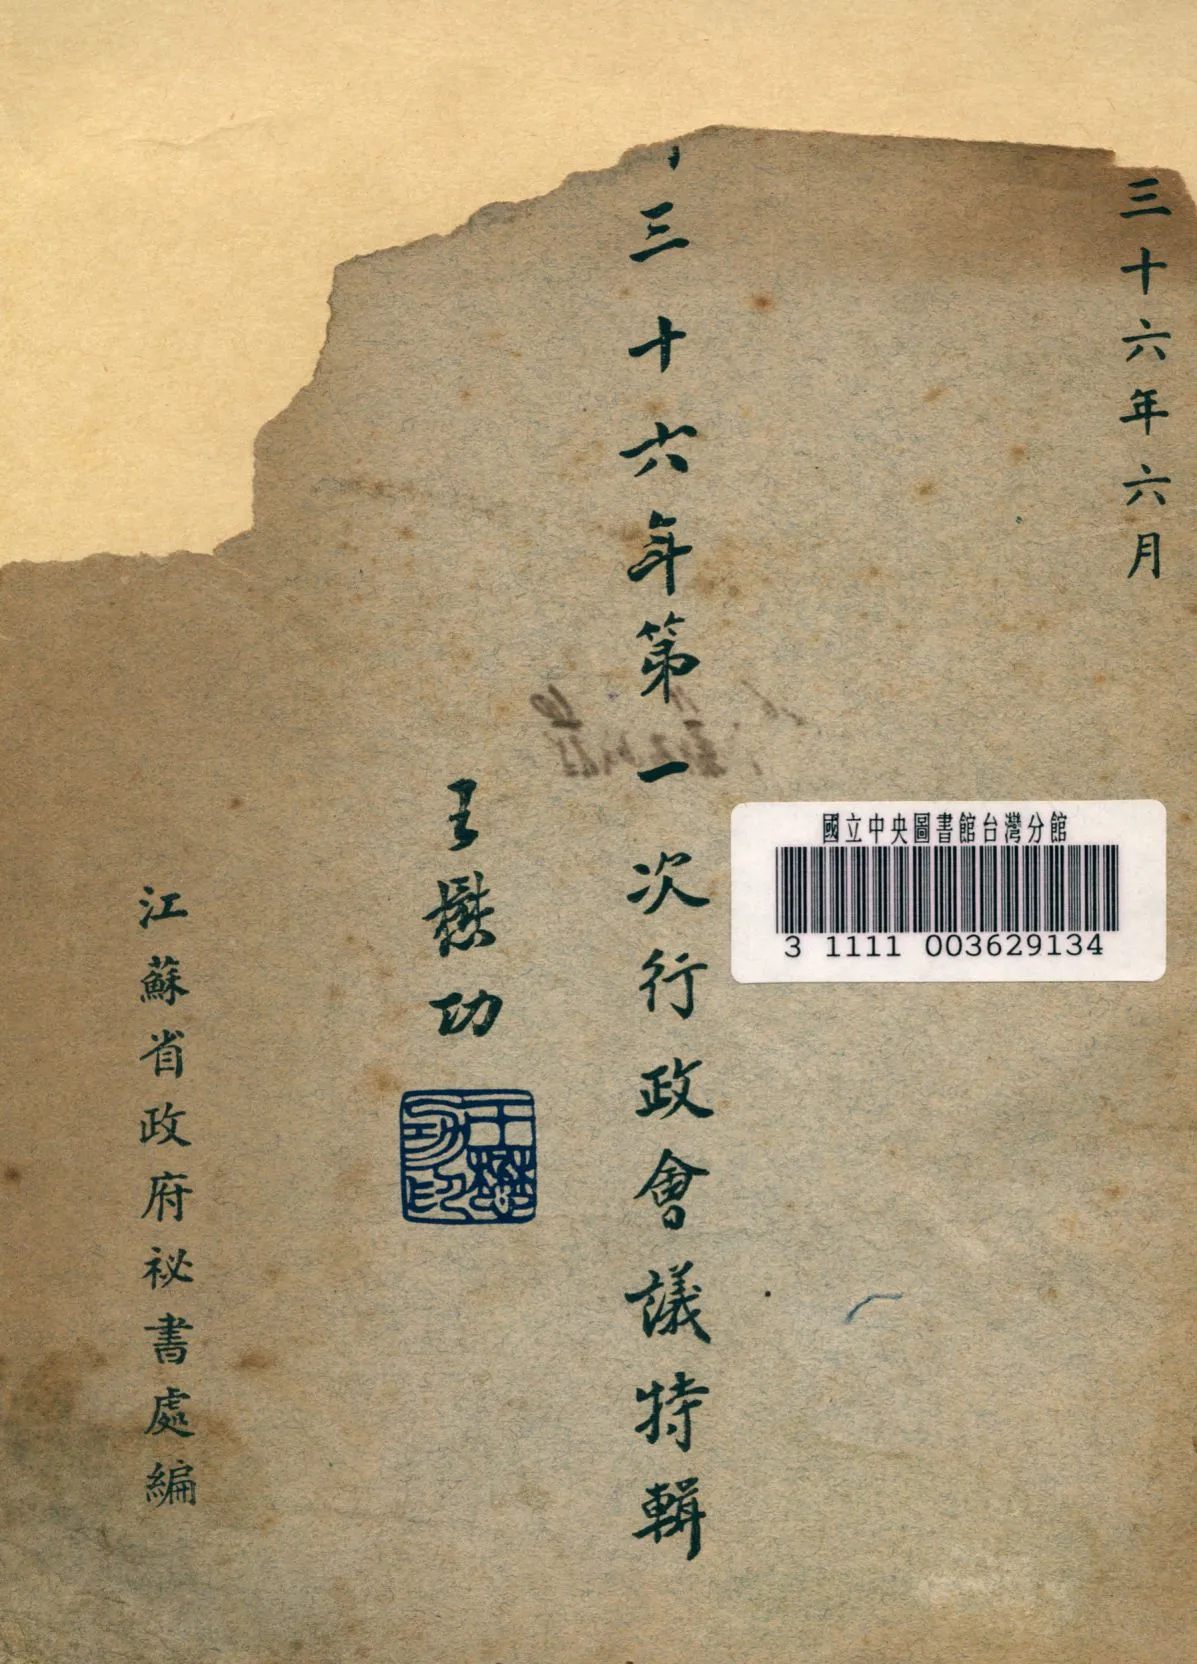 三十六年六月
三十六年第一次行政會議特輯
王懋功
王懋功印
江蘇省政府祕書處編
國立中央圖書館台灣分館
3 1111 003629134